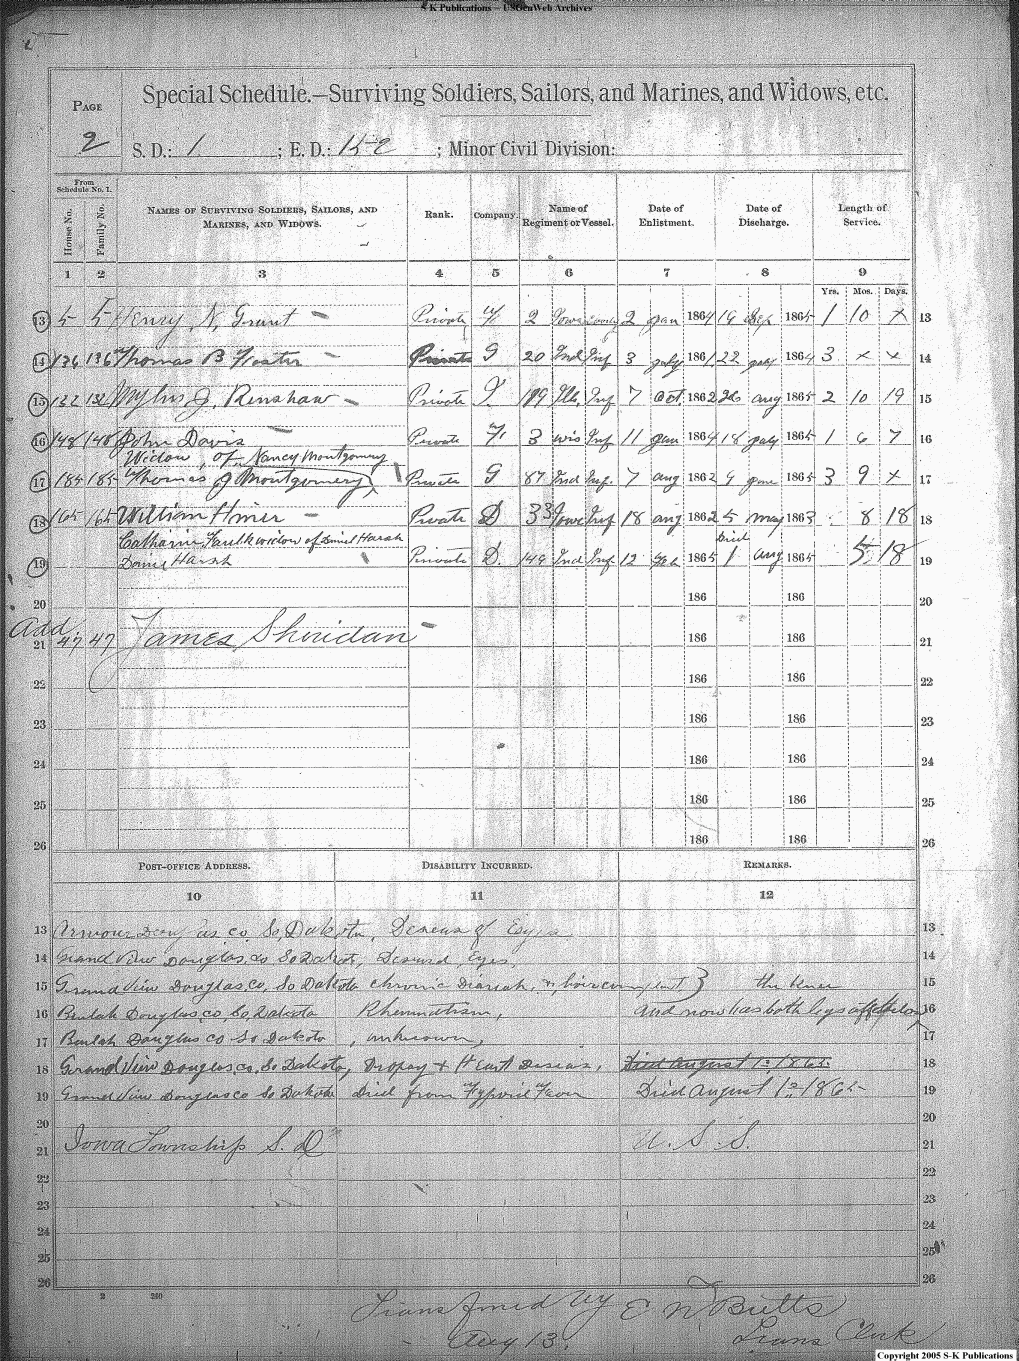 S-K Publications – USGenWeb Archives
Special Schedule.—Surviving Soldiers, Sailors, and Marines, and Widows, etc.
PAGE
2
S. D.: 1 ; E. D.: 152 ; Minor Civil Division:
From Schedule No. 1.
House No. Family No. NAMES OF SURVIVING SOLDIERS, SAILORS, AND MARINES, AND WIDOWS. Rank. Company. Name of Regiment or Vessel. Date of Enlistment. Date of Discharge. Length of Service.
1 2 3 4 5 6 7 8 9
Yrs. Mos. Days.
13 5 5 Henry N. Grant Private 2 Iowa 2 Jan 1864 19 Sep 1865 1 10 x 13
14 136 136 Thomas B Foster Private G 20 Ind Inf 3 July 1861 22 July 1864 3 x x 14
15 132 132 Mylus J. Renshaw Private 189 Ills. Inf 7 Oct. 1862 20 aug 1865 2 10 19 15
16 148 148 John Davis Private 3 wis Inf 11 Jan 1864 18 July 1865 1 6 7 16
Widow, of Nancy Montgomery
17 185 185 Thomas J Montgomery Private G 87 Ind Inf. 7 aug 1862 9 June 1865 3 9 x 17
18 165 165 William Hiner Private D 33 Iowa Inf 18 aug 1862 5 may 1863 8 18 18
Catharine Faulk widow of Daniel Harsh Died
19 Daniel Harsh Private D. 149 Ind Inf 12 Feb 1865 1 aug 1865 5 18 19
20 186 186 20
Add
21 47 47 James Sheridan 186 186 21
22 186 186 22
23 186 186 23
24 186 186 24
25 186 186 25
26 186 186 26
POST-OFFICE ADDRESS. DISABILITY INCURRED. REMARKS.
10 11 12
13 Armour Douglas co So, Dakota, Deseas of Eyes 13
14 Grand View Douglas, co So Dakota, Deseased Eyes, 14
15 Grand View Douglas co, So Dakota chronic Diareah, the knee 15
16 Beulah Douglas, co, So, Dakota Rhumatism, and now has both legs off below 16
17 Beulah Douglas co So Dakota, unknown, 17
18 Grand View Douglas, co, So. Dakota, Dropsy & Heart Deseas, Died August 1st 1865 18
19 Grand View Douglas co So Dakota Died from Typoid Fever Died August 1st 1865 19
20 20
21 Iowa Township S. D U. S. S. 21
22 22
23 23
24 24
25 25
26 26
2 260
Transfered by E W Butts
Aug 13. Trans Clerk
Copyright 2005 S-K Publications